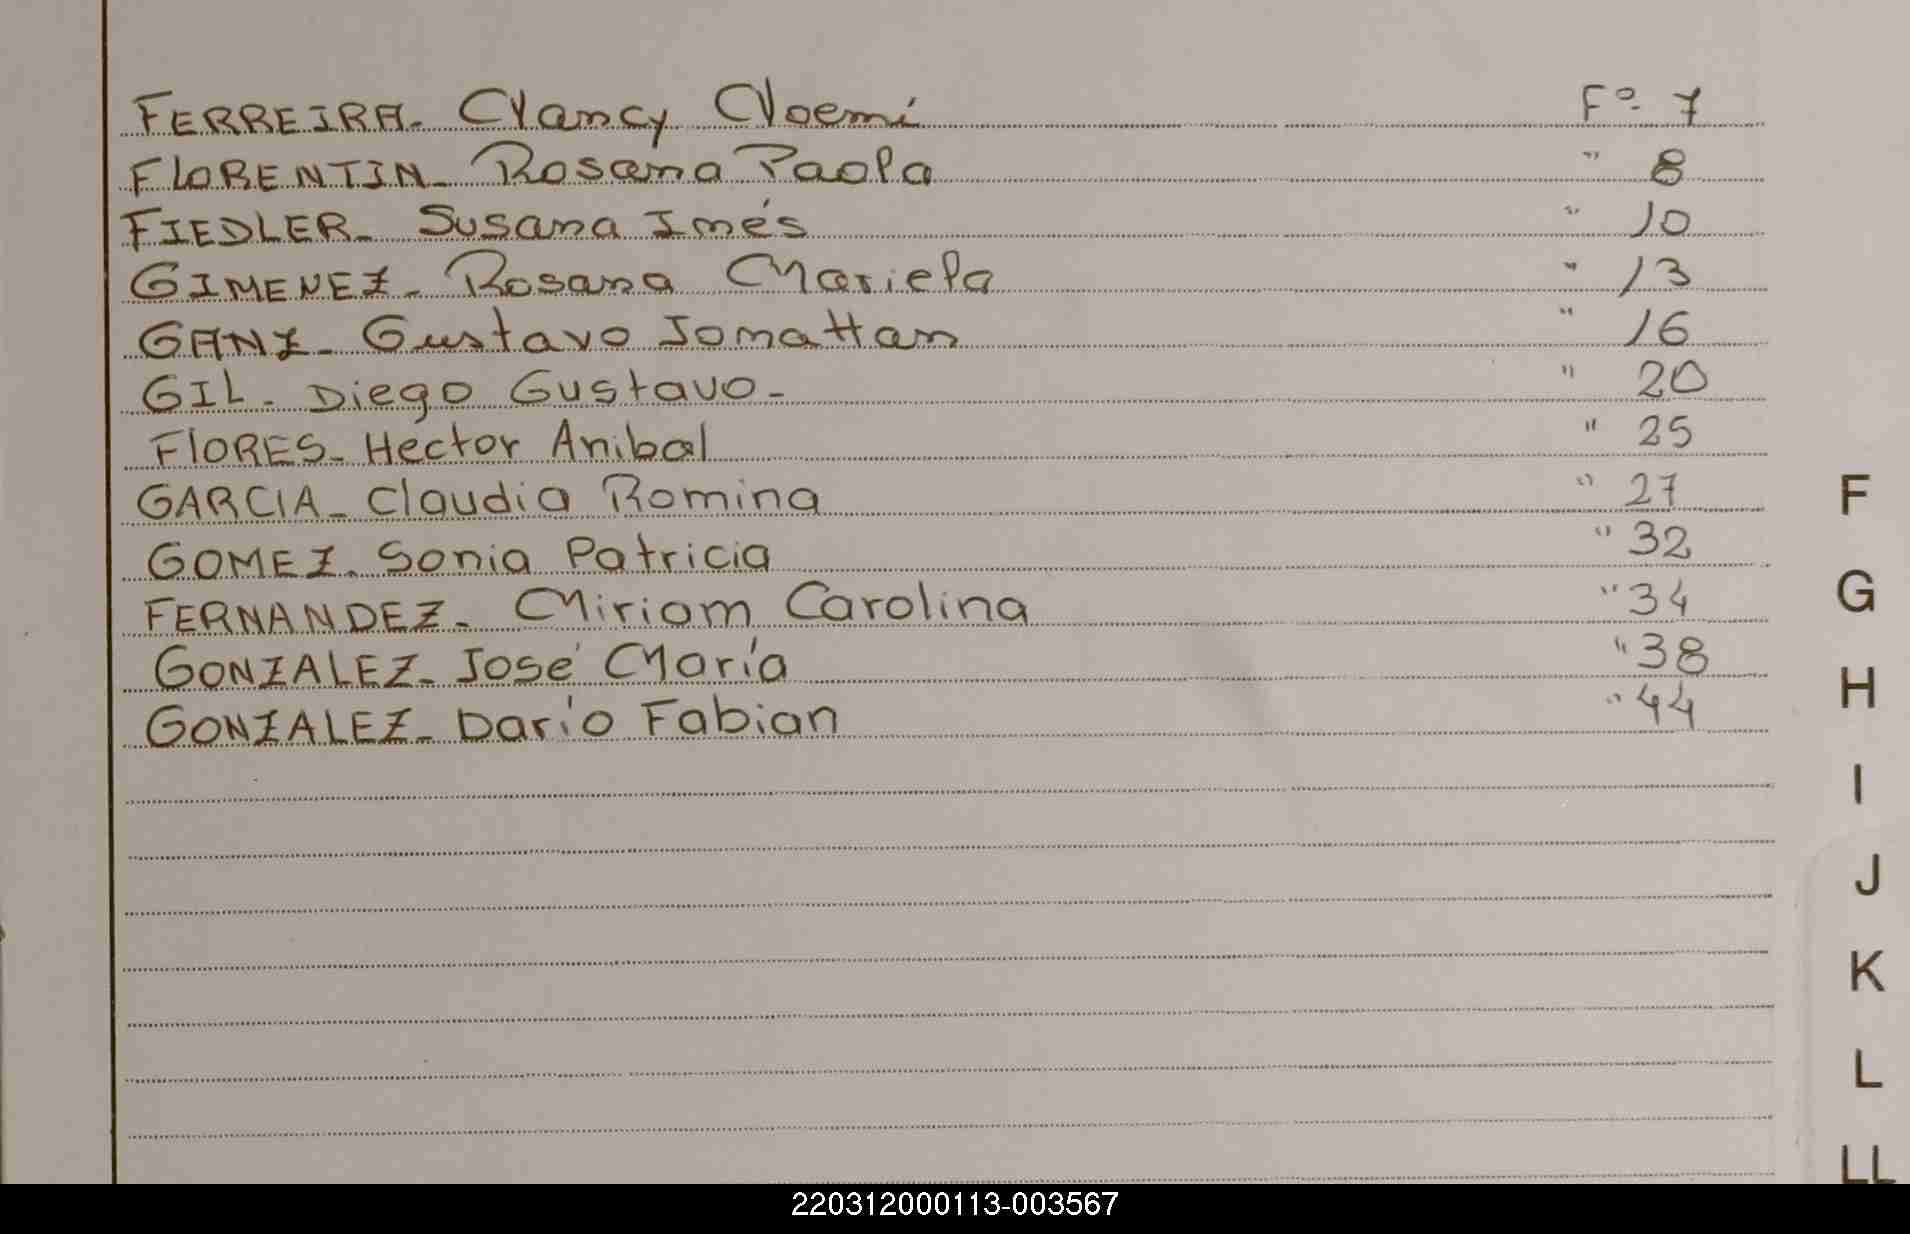 FERREIRA- Nancy Noemí F° 7
FLORENTIN- Rosana Paola " 8
FIEDLER- Susana Inés " 10
GIMENEZ- Rosana Mariela " 13
GANZ- Gustavo Jonattan " 16
GIL- Diego Gustavo- " 20
FlORES- Hector Anibal " 25
GARCIA- Claudia Romina " 27
GOMEZ. Sonia Patricia " 32
FERNANDEZ- Miriam Carolina " 34
GONZALEZ- José María " 38
GONZALEZ- Darío Fabian " 44
F
G
H
I
J
K
L
LL
220312000113-003567